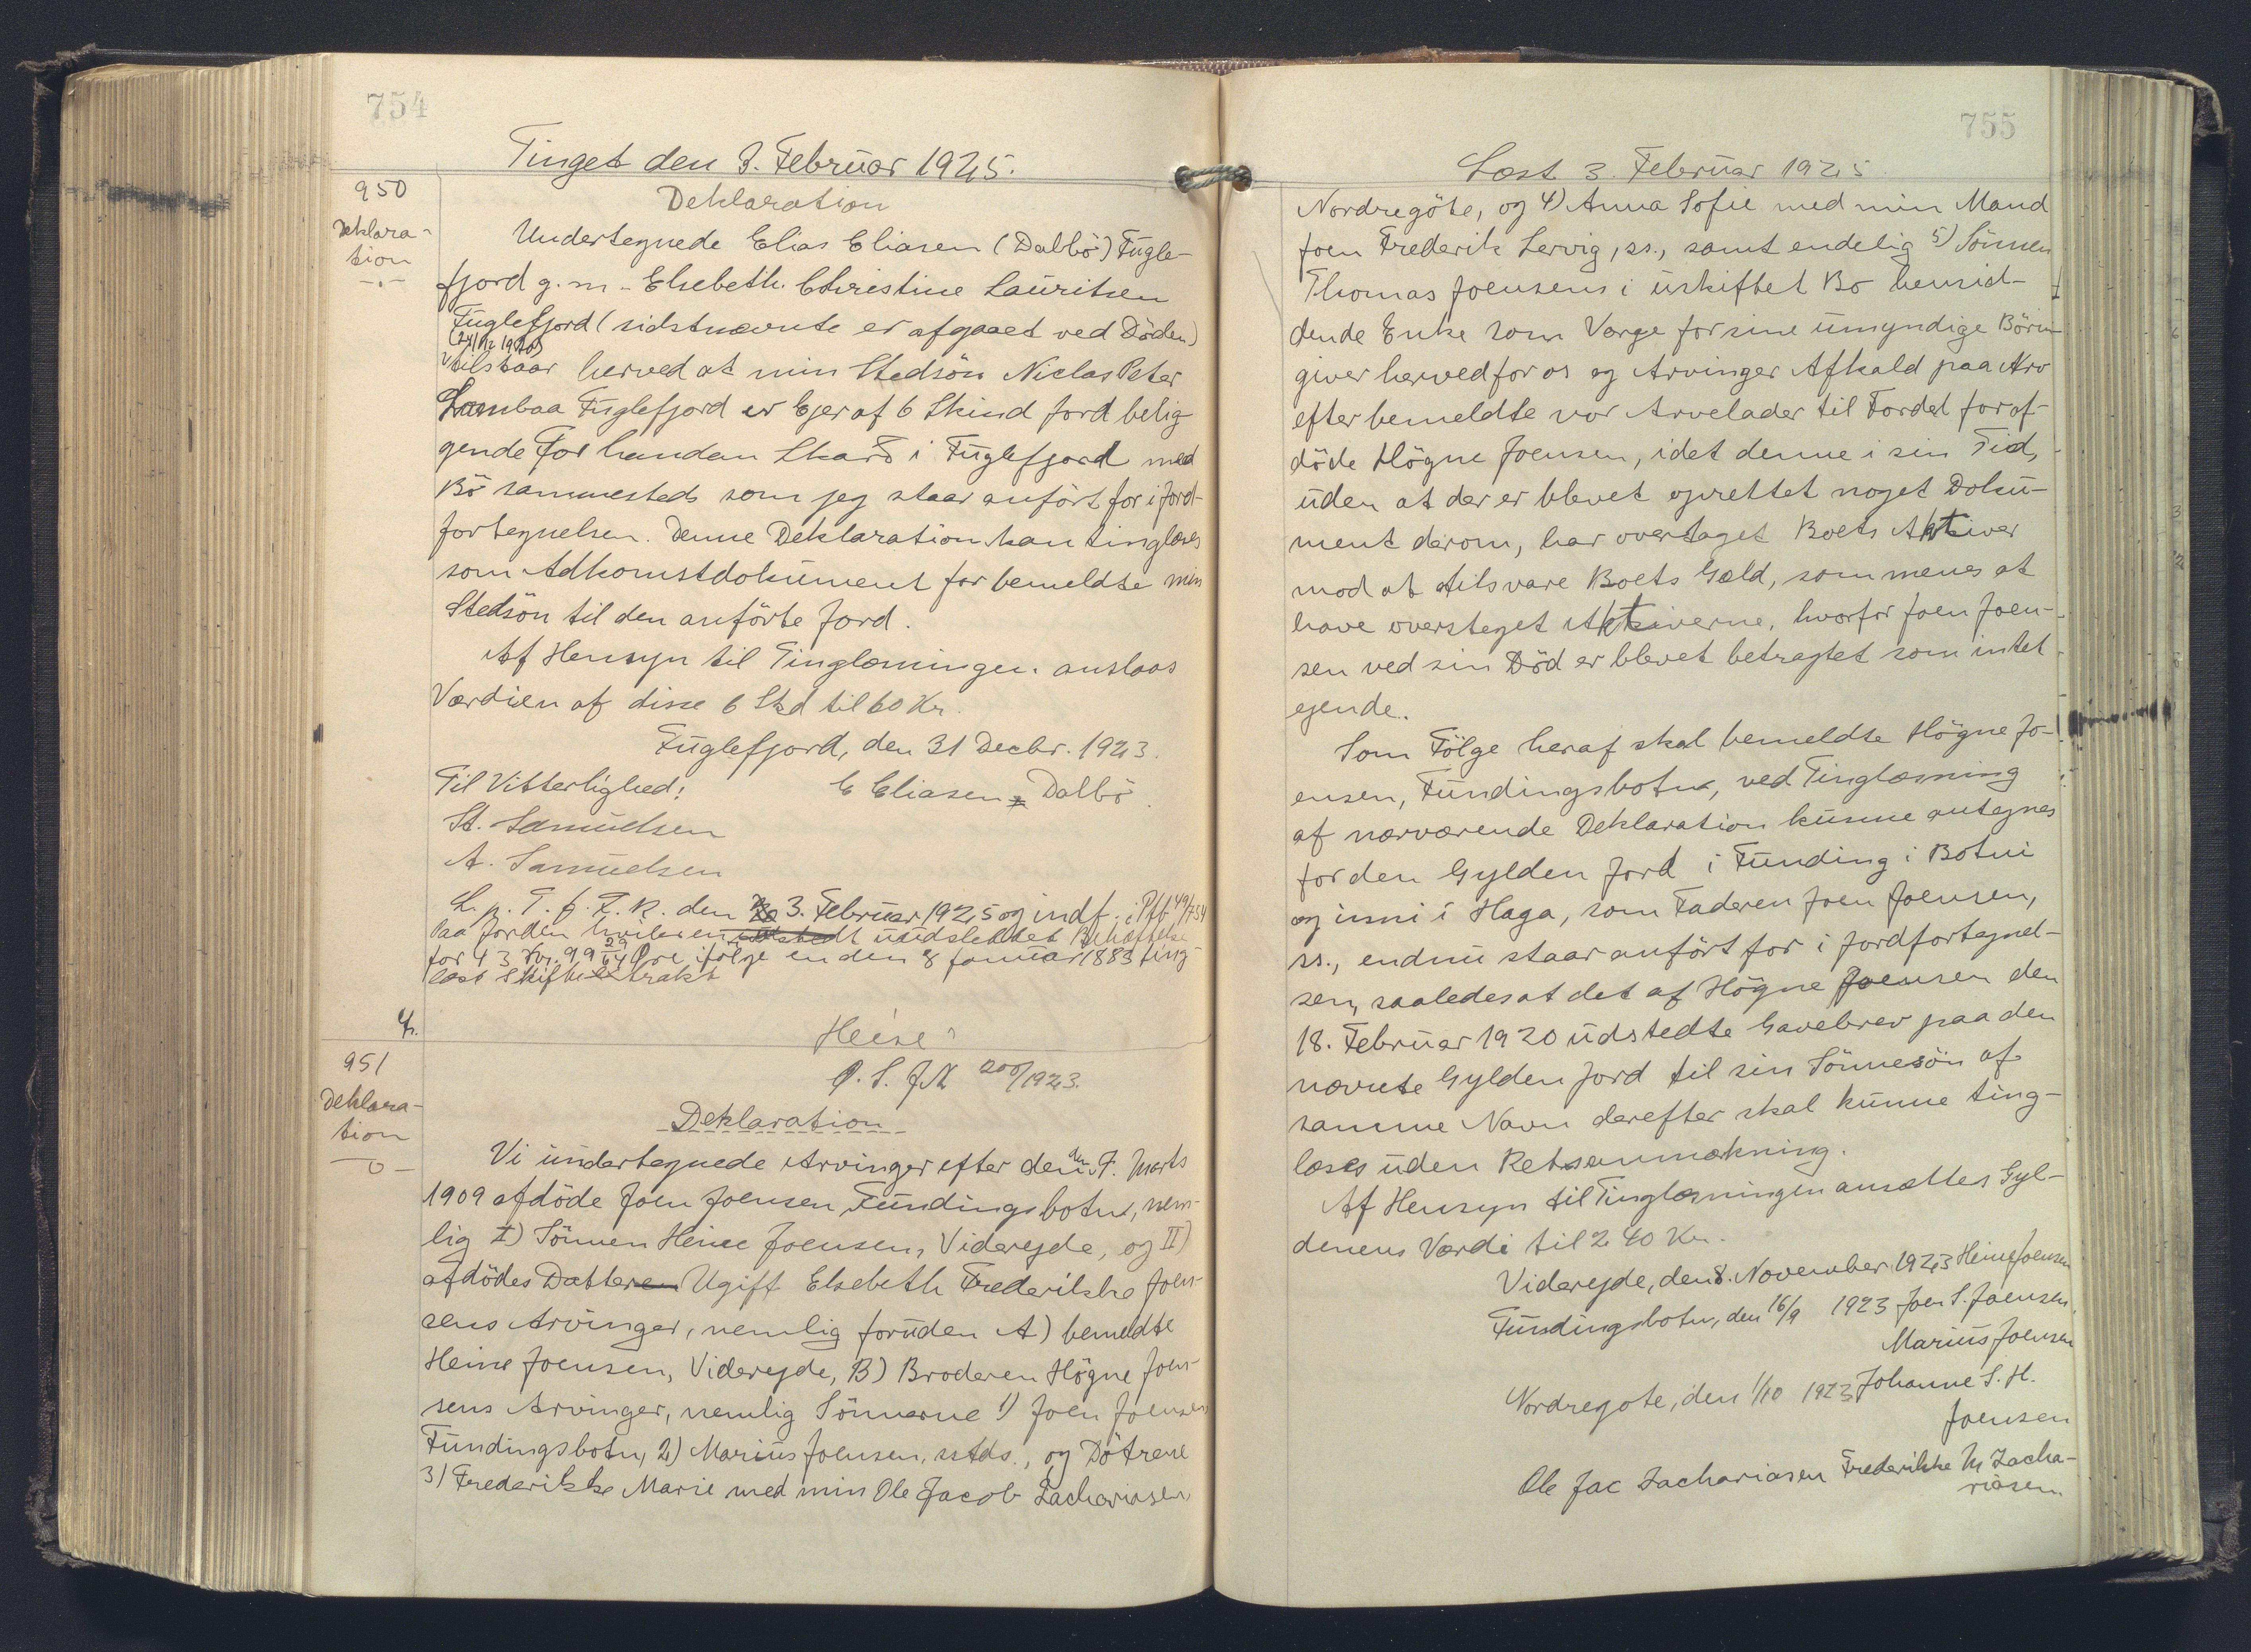 754
Tinget den 3. Februar 1925.
950
Deklara-
tion
Deklaration
Undertegnede Elias Eliasen (Dalbö) Fugle-
fjord g. m. Elsebeth Christine Lauritsen
Fuglefjord (sidstnævnte er afgaaet ved Döden)
tilstaar herved at min Stedsön Niclas Peter
Lambaa Fuglefjord er Ejer af 6 Skind Jord belig-
gende For handan Skarð i Fuglefjord med
Bö sammesteds som jeg staar anfört for i Jord-
fortegnelsen. Denne Deklaration kan tinglæses
som Adkomstdokument for bemeldte min
Stedsön til den anförte Jord.
Af Hensyn til Tinglæsningen anslaas
Værdien af disse 6 Skd til 60 Kr.
Fuglefjord, den 31 Decbr. 1923.
Til Vitterlighed: E Eliasen Dalbö.
St. Samuelsen
A. Samuelsen
L. p. T. f. F. R. den 3. Februar 1925 og indf. i Ptb 49/754
Paa Jorden hviler en uudslettet Behæftelse
for 43 Kr. 99 29/64 Öre ifölge en den 8 Januar 1883 ting-
læst Skifteextrakt
Heise
951
Deklara-
tion
O. S. J. N. 200/1923.
Deklaration
Vi undertegnede Arvinger efter den 7. Marts
1909 afdöde Joen Joensen, Fundingsbotn, nem-
lig I) Sönnen Heine Joensen, Viderejde, og II)
afdödes Datter Ugift Elsebeth Frederikke Joen-
sens Arvinger, nemlig foruden A) bemeldte
Heine Joensen, Viderejde, B) Broderen Högne Joen-
sens Arvinger, nemlig Sönnerne 1) Joen Joensen
Fundingsbotn, 2) Marius Joensen, sstds., og Dötrene
3) Frederikke Marie med min Ole Jacob Zachariasen,
755
Læst 3. Februar 1925
Nordregöte, og 4) Anna Sofie med min Mand
Joen Frederik Lervig, ss., samt endelig 5) Sönnen
Thomas Joensens i uskiftet Bo hensid-
dende Enke som Værge for sine umyndige Börn
giver herved for os og Arvinger Afkald paa Arv
efter bemeldte vor Arvelader til Fordel for af-
döde Högne Joensen, idet denne i sin Tid,
uden at der er blevet oprettet noget Doku-
ment derom, har overtaget Boets Aktiver
mod at tilsvare Boets Gæld, som menes at
have oversteget Aktiverne, hvorfor Joen Joen-
sen ved sin Död er blevet betragtet som intet
ejende.
Som Fölge heraf skal bemeldte Högne Jo-
ensen, Fundingsbotn, ved Tinglæsning
af nærværende Deklaration kunne antegnes
for den Gylden Jord i Funding i Botni
og inni i Haga, som Faderen Joen Joensen,
ss., endnu staar anfört for i Jordfortegnel-
sen, saaledes at det af Högne Joensen den
18. Februar 1920 udstedte Gavebrev paa den
nævnte Gylden Jord til sin Sönnesön af
samme Navn derefter skal kunne ting-
læses uden Retsanmærkning.
Af Hensyn til Tinglæsningen ansættes Gyl-
denens Værdi til 240 Kr.
Viderejde, den 8. November 1923 Heine Joensen
Fundingsbotn, den 16/9 1923 Joen S. Joensen.
Marius Joensen
Nordregote, den 1/10 1923 Johanne S. H.
Joensen
Ole Jac Zachariasen Frederikke M Zacha-
riasen